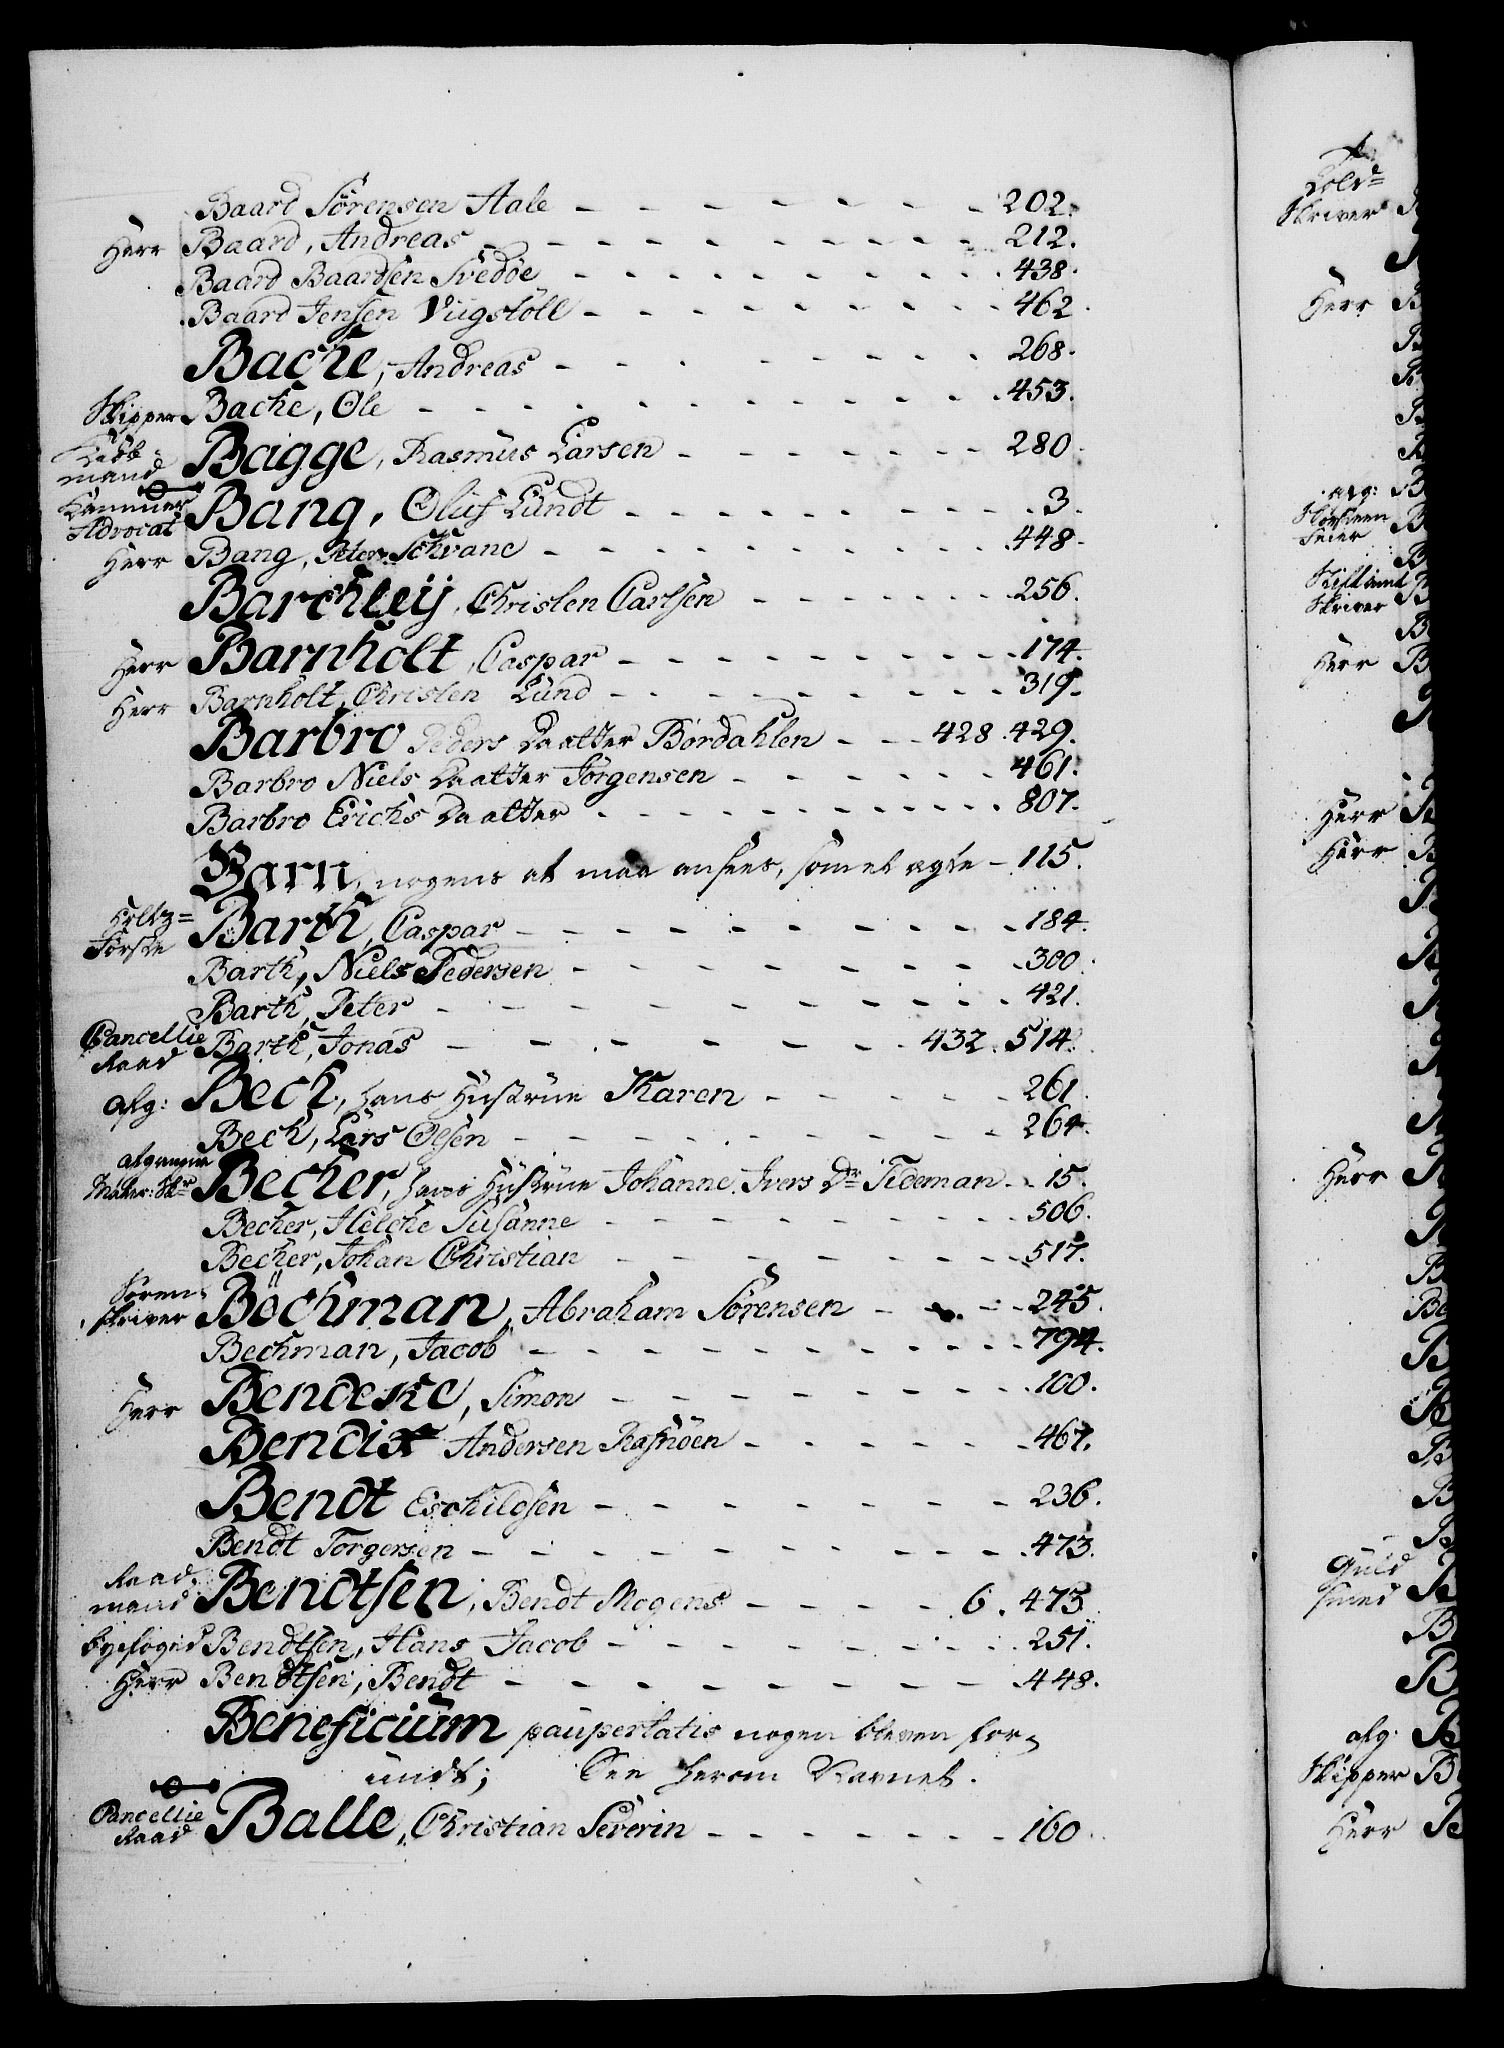 Baard Sörensen Aale - - - - - - - 202.
Herr Baard, Andreas - - - - - - - 212.
Baard Baardsen Svedöe - - - - - - - 438.
Baard Jensen Viigstöll - - - - - - - 462.
Bache, Andreas - - - - - - - 268.
Skipper Bache, Ole - - - - - - - 453.
Kiöb=
mand Bagge, Rasmus Larsen - - - - - - - 280.
Kammer
Advocat Bang, Oluf Lundt - - - - - - - 3.
Herr Bang, Peter Schvane - - - - - - - 448.
Barchleij, Christen Carlsen - - - - - - - 256.
Herr Barnholt, Caspar - - - - - - - 174.
Herr Barnholt, Christen Lund - - - - - - - 319.
Barbro Peders Daatter Bördahlen - - - 428. 429.
Barbro Niels Daatter Jörgensen - - - - - - 461.
Barbro Erichs Daatter - - - - - - - 807.
Barn, nogens at maa ansees, som et ægte - 115.
Holtz=
Förste Barth, Caspar - - - - - - - 184.
Barth, Niels Pedersen - - - - - - - 300.
Barth, Peter - - - - - - - 421.
Cancellie
Raad Barth, Jonas - - - - - - - 432. 514.
afg: Beck, hans Hustrue Karen - - - - - 261.
Bech, Lars Olsen - - - - - - - 264.
afgangne
Becher, hans Hustrue Johanne Ivers Dr Tideman - 15.
Becher, Hilche Susanne - - - - - - - 506.
Becher, Johan Christian - - - - - - - 517.
Soren=
skriver Böchman, Abraham Sörensen - - - 245.
Bechman, Jacob - - - - - - - 794.
Herr Bendeke, Simon - - - - - - - 100.
Bendix Andersen Rasnöen - - - - - - 467.
Bendt Eschildsen - - - - - - - 236.
Bendt Torgersen - - - - - - - 473.
Raad=
mand Bendtsen, Bendt Mogens - - - - 6. 473.
byefoged Bendtsen, Hans Jacob - - - - - - - 251.
Herr Bendtsen, Bendt - - - - - - - 448.
Beneficium paupertatis nogen bleven for=
undt; See herom Navnet.
Cancellie
Raad Balle, Christian Severin - - - - - - - 160.
Skriver
Herr
afg:
Herr
Herr
Herr
Herr
Guld
smed
afg.
Skipper
Herr